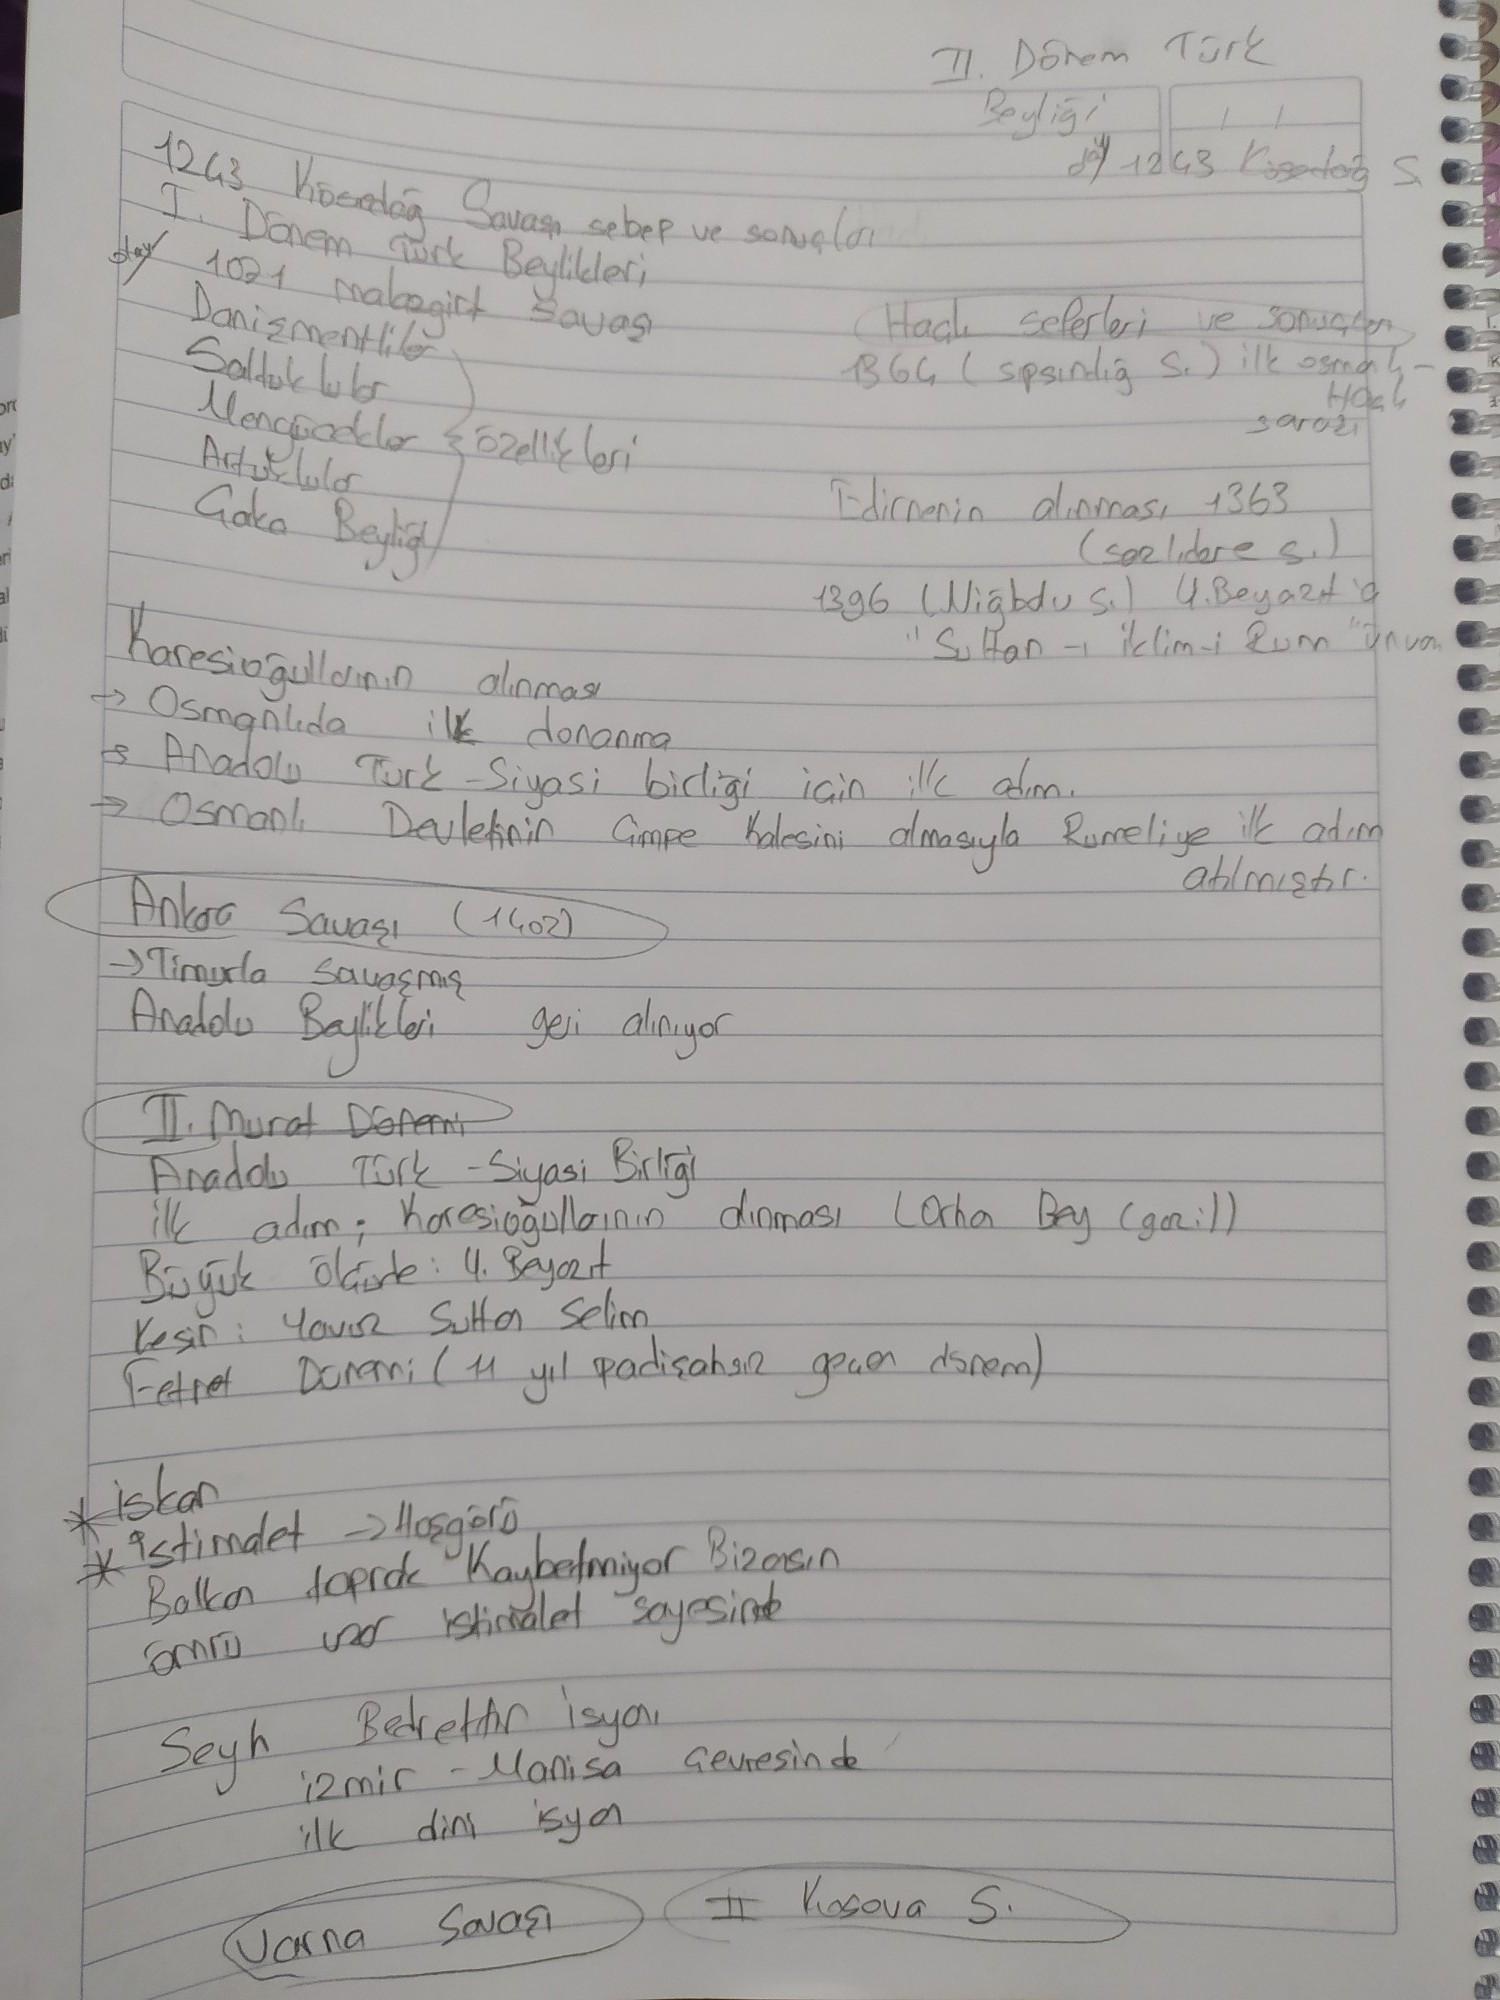 II. Dönem Türk
Beyliği
1243 Kösedağ S.
1243 Kösedağ Savaşı sebep ve sonuçları
I. Dönem Türk Beylikleri
1071 malazgirt Savaşı
Danişmentliler
Saltuklular
Mengücekler } özellikleri
Artuklular
Çaka Beyliği
Haçlı seferleri ve sonuçları
1364 (sıpsındığ S.) ilk osmanlı-
Haçlı
savaşı
Edirnenin alınması 1363
(sazlıdere s.)
1396 (Niğbdu S.) Y.Beyazıt'a
"Sultan-ı iklim-i Rum" ünvanı
Karesioğullarının alınması
→ Osmanlıda ilk donanma
→ Anadolu Türk-Siyasi birliği için ilk adım.
→ Osmanlı Devletinin Çimpe Kalesini almasıyla Rumeliye ilk adım
atılmıştır.
Ankara Savaşı (1402)
→Timurla savaşmış
Anadolu Beylikleri geri alınıyor
II. Murat Dönemi
Anadolu Türk-Siyasi Birliği
ilk adım; Karesioğullarının alınması (Orhan Bey (gazi))
Büyük ölçüde: Y. Beyazıt
Kesin: Yavuz Sultan Selim
Fetret Dönemi (11 yıl padişahsız geçen dönem)
* iskan
* istimalet → Hoşgörü
Balkan toprak Kaybetmiyor Bizansın
ömrü uzar istimalet sayesinde
Seyh Bedrettin isyanı
izmir - Manisa çevresinde
ilk dini isyan
Varna Savaşı
II Kosova S.